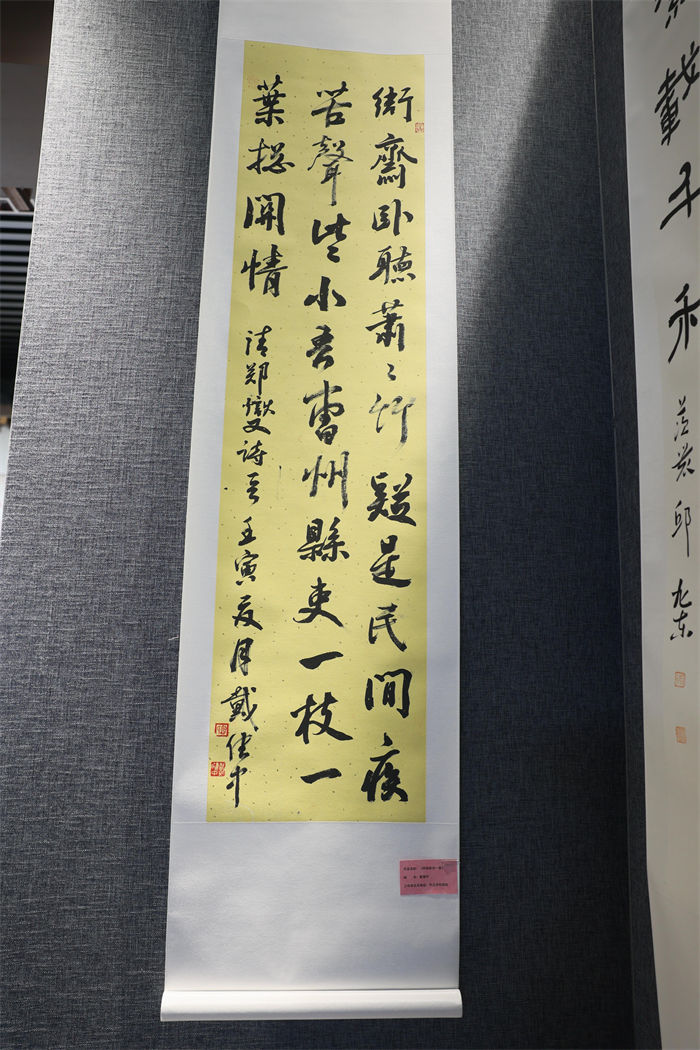 載千
邱
衙齋卧聽蕭〻竹疑是民間疾
苦聲些小吾曹州縣吏一枝一
葉揔関情
清郑燮诗 壬寅夏月戴